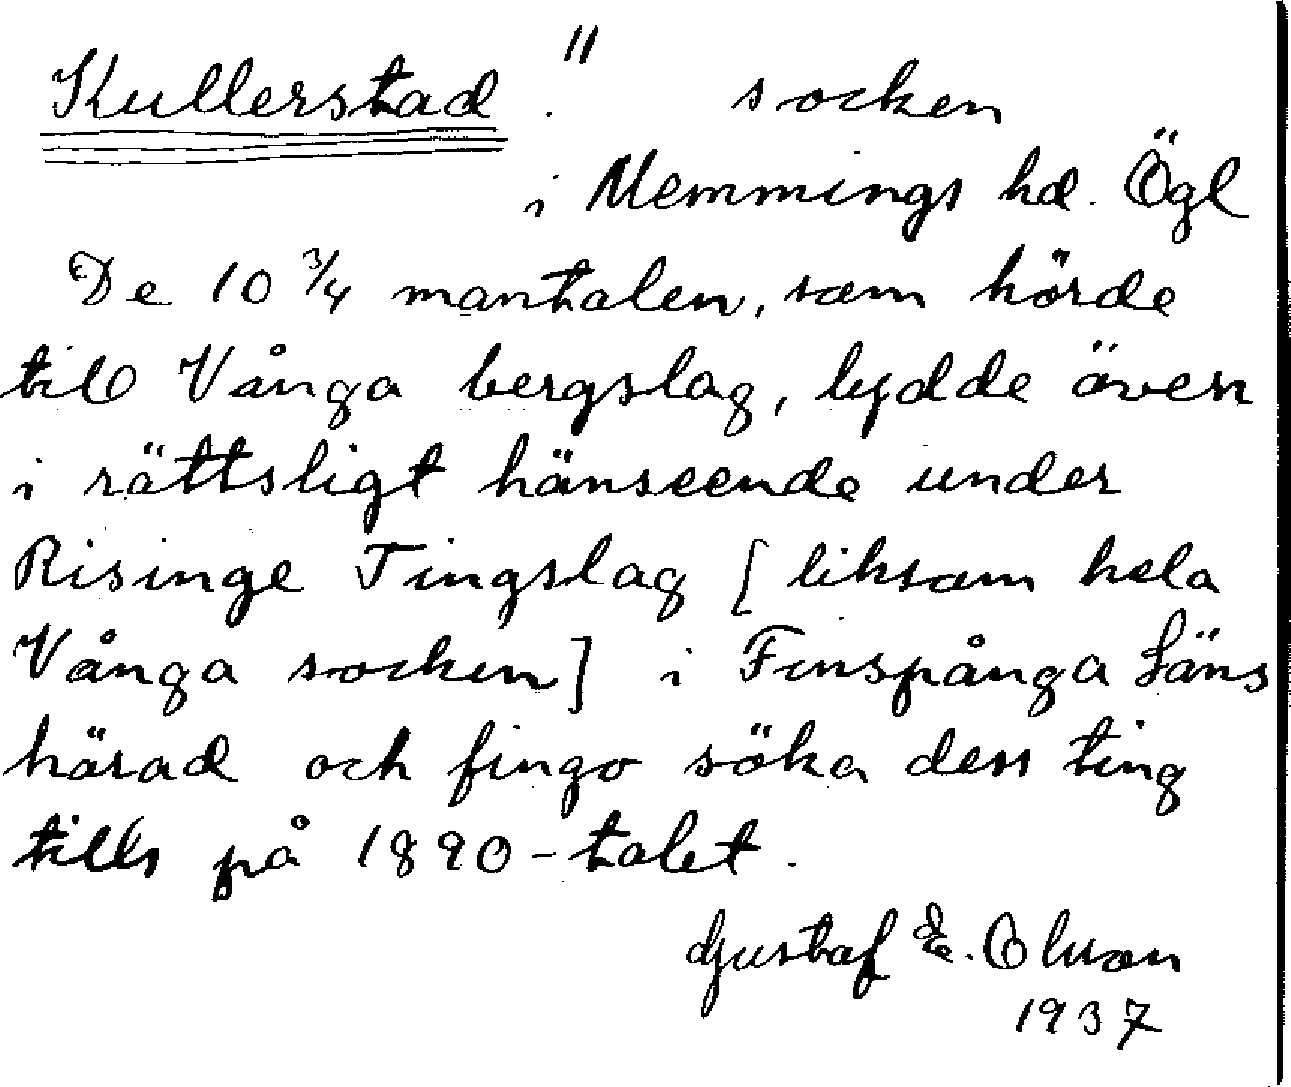 Kullerstad." socken
i Memmings hd. Ögl
De 10 3/4 mantalen, som hörde
till Vånga bergslag, lydde även
i rättsligt hänseende under
Risinge Tingslag [liksom hela
Vånga socken] i Finspånga Läns
härad och fingo söka dess ting
tills på 1890-talet.
Gustaf E. Olsson
1937